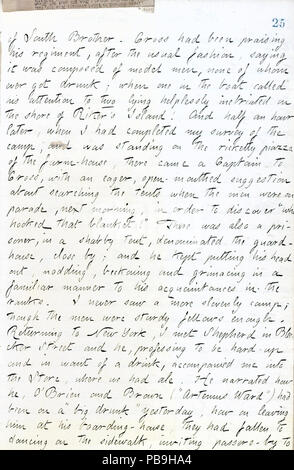 25
of South Brother. Gross had been praising
his regiment, after the usual fashion, saying
it was composed of model men, none of whom
ever got drunk; when one in the boat called
his attention to two lying helplessly inebriated on
the shore of Riker's Island! And half an hour
later, when I had completed my survey of the
camp, and was standing on the ricketty piazza
of the farm-house, there came a Captain to
Gross, with an eager, open-mouthed suggestion
about searching the tents when the men were on
parade, next morning, "in order to discover who
hooked that blanket." There was also a pri-
soner, in a shabby tent, denominated the guard-
house, close by; and he kept putting his head
out, nodding, beckoning and grimacing in a
familiar manner to his acquaintances in the
ranks. I never saw a more slovenly camp;
though the men were sturdy fellows enough.
Returning to New York I met Shepherd in Blee-
cker Street and he, professing to be hard-up
and in want of a drink, accompanied me into
the Store, where we had ale. He narrated how
he, O'Brien and Brown ("Artemus Ward") had
been on "a big drunk" yesterday, how on leaving
him at his boarding-house they had fallen to
dancing on the sidewalk, inviting passers-by to